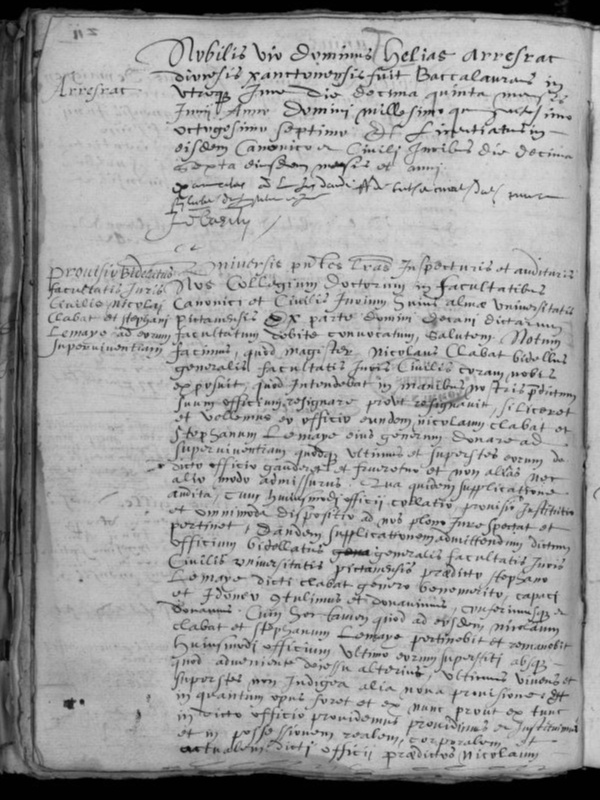 Nobilis vir dominus Helias Arresrac
Arresrac
diocesis xanctonensis fuit Baccalaureus in
utroque Jure die decima quinta mensis
Junii Anno domini millesimo quingentesimo
octogesimo septimo Et Licentiatus in
eisdem Canonico et Civili Juribus die decima
sexta eiusdem mensis et anni
Provisio Bidellatus
facultatis Juris
Civilis Nicolai
Clabat et stephani
Lemaye ad eorum
superviventiam
Universis pntes Lras Inspecturis et audituris
Nos Collegium doctorum in facultatibus
Canonici et Civilis Jurium huius almae universitatis
pictamensis Ex parte domini decani dictarum
facultatum debite convocatum, salutem Notum
facimus, quod magister Nicolaus Clabat bidellus
generalis facultatis Juris Civilis coram nobis
exposuit, quod Intendebat in manibus nostris pdictum
suum officium resignare prout resignavit, si liceret
et vellemus ex officio eundem nicolaum clabat et
Stephanum Lemaye eius generum donare ad
superviventiam quodque ultimus et superstes eorum de
dicto officio gauderet et frueretur et non alias nec
alio modo admissurus. Qua quidem supplicatione
audita, Cum huiusmodi officii collatio provisio Institutio
et omnimoda dispositio ad nos pleno Jure spectat et
pertinet, Eandem supplicationem admittendum dictum
officium bidellatus generalis facultatis Juris
Civilis universitatis pictamensis praedicto stephano
Lemaye dicti clabat genero benemerito, capaci
et Idoneo contulimus et donavimus, conferimusque et
donamus. Cum hoc tamen quod ad eosdem nicolaum
clabat et stephanum Lemaye pertinebit et remanebit
huiusmodi officium ultimo eorum superstiti absque
quod adveniente decessu alterius, ultimus vivens et
superstes non Indigea alia nova provisione Et
in quantum opus foret et ex nunc prout ex tunc
in dicto officio providemus providimus et Instituimus
et in possessionem realem, corporalem et
actualem dicti officii praedictos Nicolaum